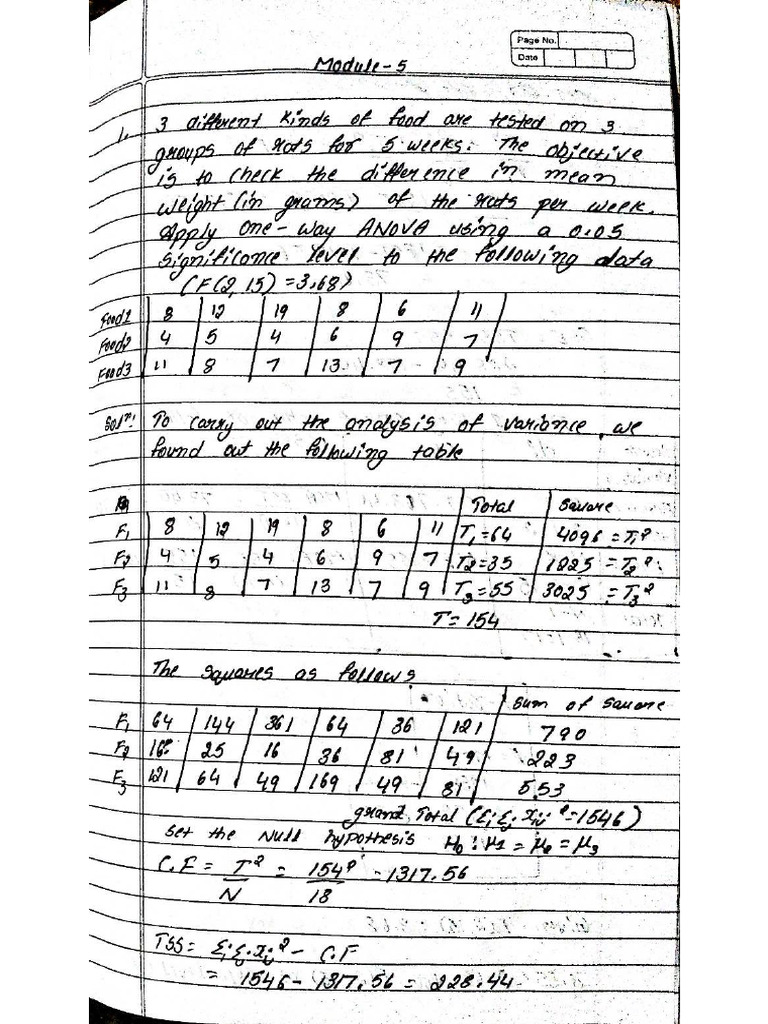 Page No.
Date
Module-5
1. 3 different kinds of food are tested on 3
groups of rats for 5 weeks. The objective
is to check the difference in mean
weight (in grams) of the rats per week.
Apply one-way ANOVA using a 0.05
significance level to the following data
(F(2,15) = 3.68)
Food1 8 12 19 8 6 11
Food2 4 5 4 6 9 7
Food3 11 8 7 13 7 9
Soln: To carry out the analysis of variance, we
found out the following table
Total Square
F1 8 12 19 8 6 11 T1=64 4096 = T1²
F2 4 5 4 6 9 7 T2=35 1225 = T2²
F3 11 8 7 13 7 9 T3=55 3025 = T3²
T = 154
The squares as follows
Sum of Square
F1 64 144 361 64 36 121 790
F2 16 25 16 36 81 49 223
F3 121 64 49 169 49 81 553
grand Total (ΣiΣj xij² = 1546)
Set the Null hypothesis H0: μ1 = μ2 = μ3
C.F = T²/N = 154²/18 = 1317.56
TSS = ΣiΣj xij² - C.F
= 1546 - 1317.56 = 228.44